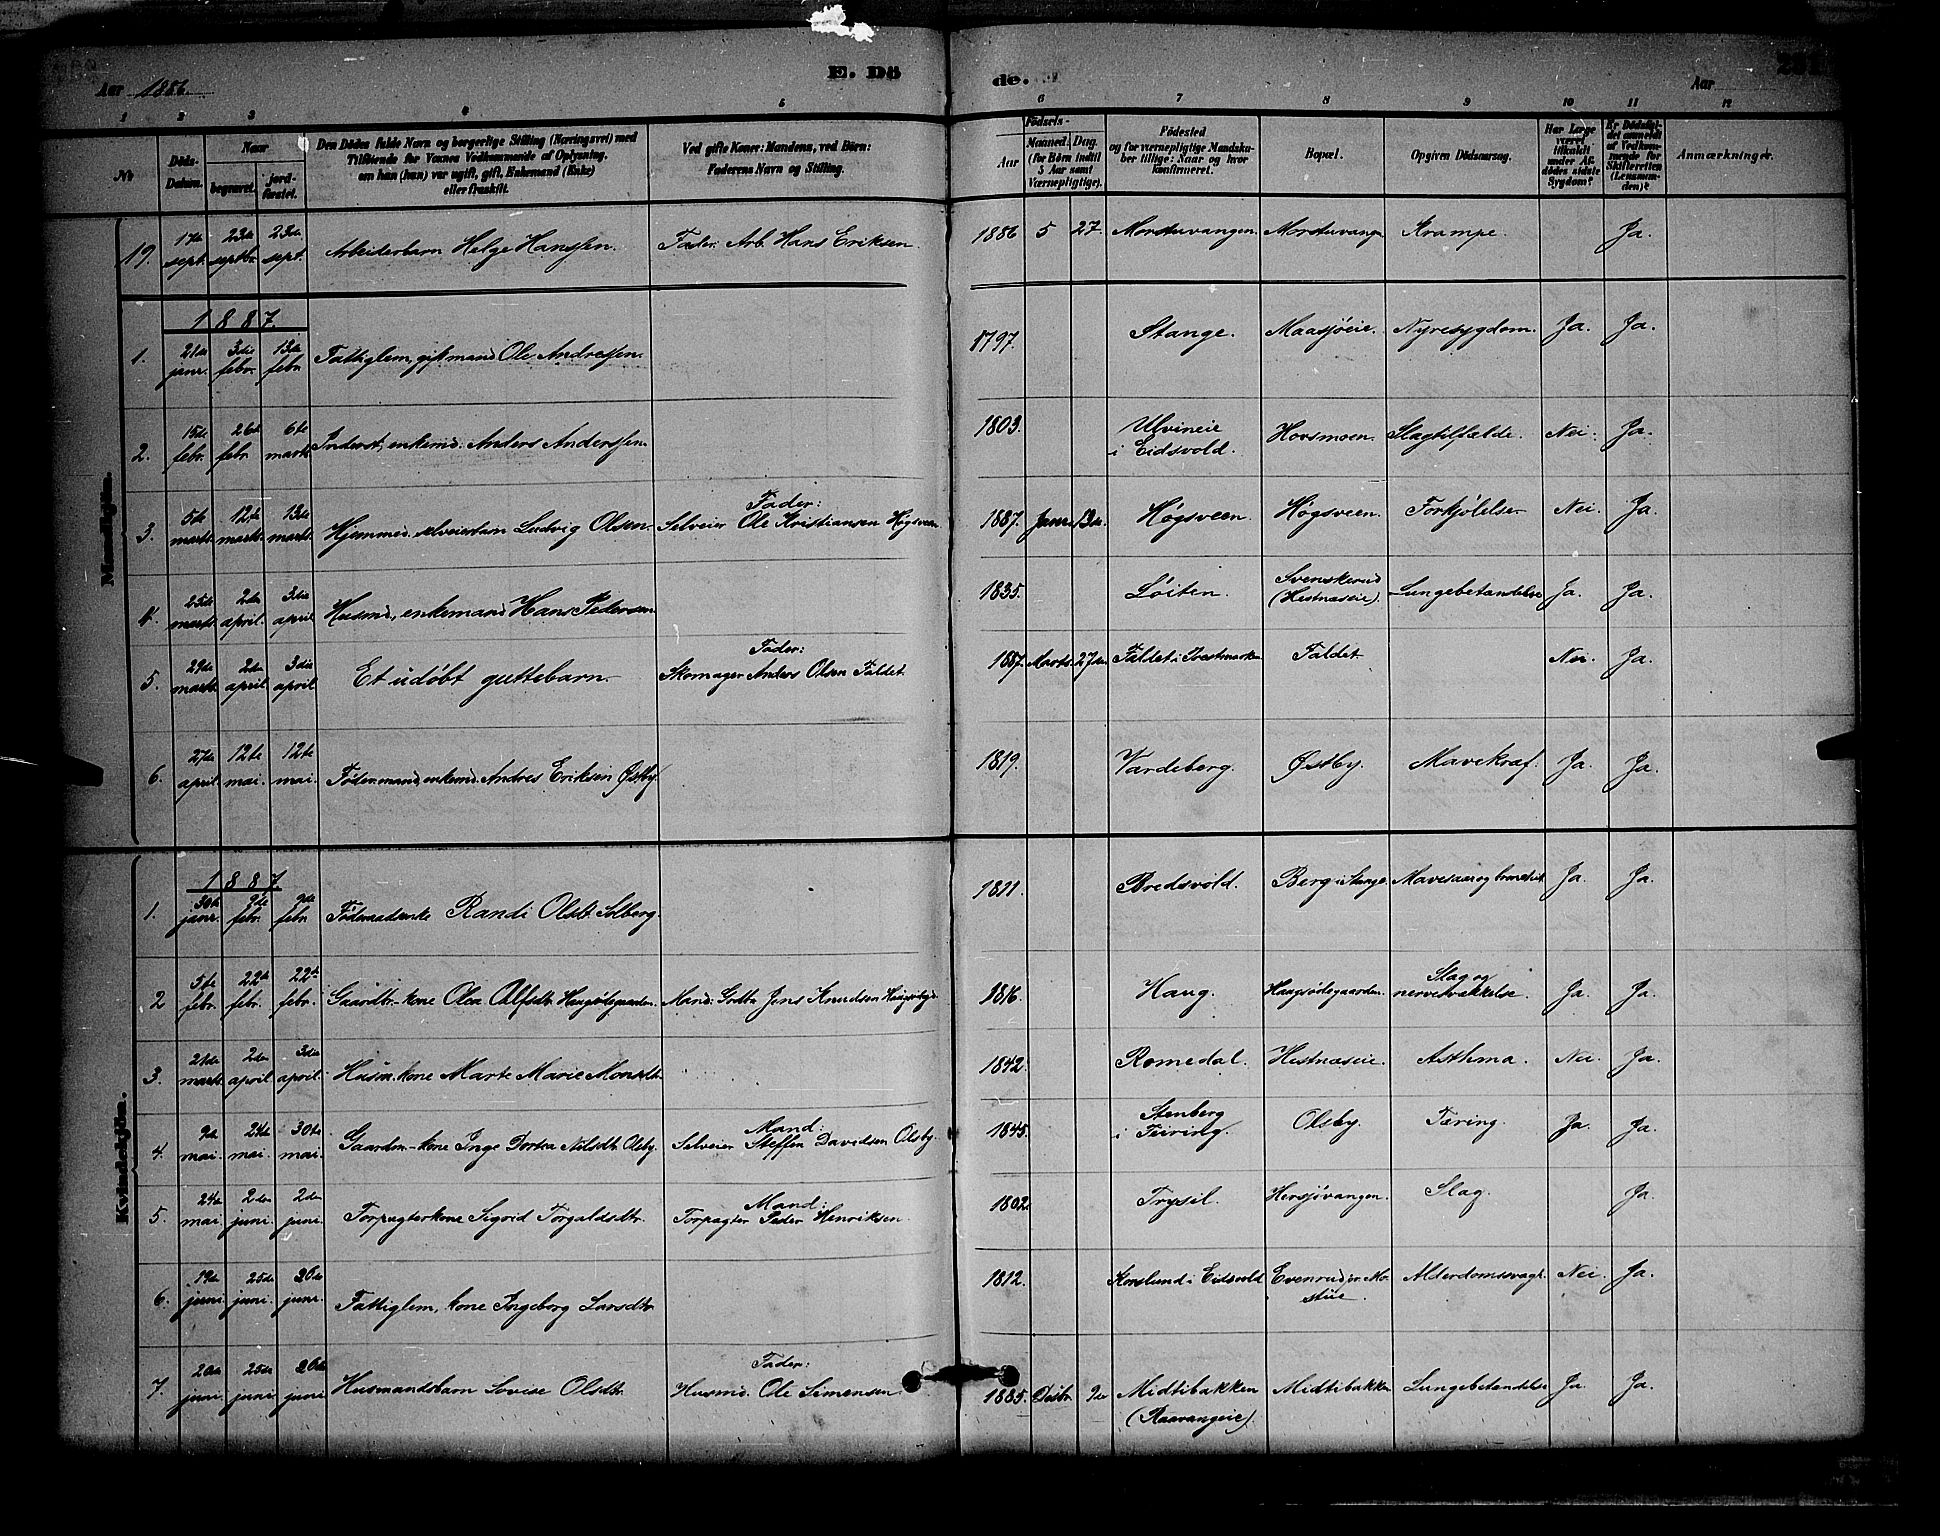 Aar 1886. E. Dö
de. 231
Aar
1 2 3 4 5
6 7 8 9 10 11 12
No
Döds-
Datum.
Naar
begravet.
jord-
fæstet.
Den Dödes fulde Navn og borgerlige Stilling (Næringsvei) med
Tilföiende for Voxnes Vedkommende af Oplysning,
om han (hun) var ugift, gift, Enkemand (Enke)
eller fraskilt.
Ved gifte Koner: Mandens, ved Börn:
Faderens Navn og Stilling.
Födsels-
Aar
Maaned. Dag.
(for Börn indtil
5 Aar samt
Værnepligtige).
Födested
og for værnepligtige Mandska-
ber tillige: Naar og hvor
konfirmeret.
Bopæl.
Opgiven Dödsaarsag.
Har Læge
været
tilkaldt
under Af-
dödes sidste
Sygdom?
Er Dödsfal-
det anmeldt
af Vedkom-
mende for
Skifteretten
(Lensman-
den)?
Anmærkninger.
Mandkjön.
19. 17de sept. 23de septbr. 23de sept. Arbeiderbarn Helge Hanssen. Fader: Arb. Hans Eriksen. 1886 5 27. Morstuvangen. Morstuvangen Krampe. Ja.
1887.
1. 21de janr. 3die febr. 13de febr. Fattiglem, gift mand Ole Andressen. 1797. Stange. Maasjøeie. Nyresygdom. Ja. Ja.
2. 15de febr. 26de febr. 6te marts Inderst, enkemd. Anders Anderssen. 1803. Ulvineie
i Eidsvold. Hovsmoen. Slagtilfælde. Nei. Ja.
3. 5te marts. 12te marts. 13de marts. Hjemmed. selveierbarn Ludvig Olsen. Fader:
Selveier Ole Kristiansen Høgsveen 1887. Janr. 13de. Høgsveen. Høgsveen. Forkjølelse. Nei. Ja.
4. 25de marts. 2den april 3die april. Husmd., enkemand Hans Pedersen 1835. Løiten. Svenskerud
(Hestnæseie). Lungebetændelse Ja. Ja.
5. 29de marts. 2den april. 3die april Et udøbt guttebarn. Fader:
Skomager Anders Olsen Faldet. 1887. Marts. 27de. Faldet i Præstmarken Faldet. Nei. Ja.
6. 27de april. 12te mai. 12te mai. Føderaadsmand, enkemd. Andres Eriksen Østby. 1819. Vardeberg. Østby. Mavekræf. Ja. Ja.
Kvindekjön.
1887.
1. 30te janr. 9de febr. 9de febr. Føderaadsenke Randi Olsdt. Solberg. 1811. Bredsvold. Berg i Stange. Mavesaar og Ja. Ja.
2 5te febr. 22de febr. 22de febr. Gaardbr.-kone Olea Alfsdt. Haugsødegaarden. Mand: Gbr. Jens Knudsen 1816. Haug. Haugsødegaarden. Slag og
nervesvækkelse. Ja. Ja.
3. 21de marts. 2den april. 3die april. Husm. kone Marte Marie Monsdtr. 1842. Romedal. Hestnæseie. Asthma. Nei. Ja.
4. 9de mai. 24de mai. 30te mai. Gaardm.-kone Inge Dortea Nilsdtr. Olsby. Mand:
Selveier Steffen Davidsen Olsby. 1845. Stenberg
i Feiring. Olsby. Tæring. Ja. Ja.
5. 24de mai. 2den juni. 2den juni. Forpagterkone Sigrid Torgalsdtr. Mand:
Forpagter Peder Henriksen. 1802. Trysil. Hersjøvangen. Slag. Ja.
6. 19de juni. 25de juni. 26de juni. Fattiglem, kone Ingeborg Larsdtr. 1812. Korslund i Eidsvold Evenrud
stue. Alderdomssvagh. Nei. Ja.
7. 20de juni. 25de juni. 26de juni Husmandsbarn Lovise Olsdtr. Fader:
Husmd. Ole Simensen. 1885. Desbr. 9de Midtibakken
(Raavangeie). Midtibakken Lungebetændelse Ja. Ja.